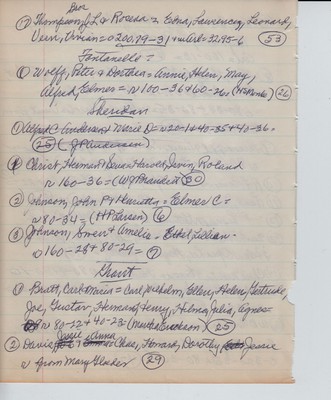 Dor
17 Thompson, J L & Rozena = Edna, Laurence, Leonard,
Vern, Vivian = o 200, 79-31 + 32, 95-6 53
Fontanelle =
① Wolff, Peter & Dorthea = Annie, Helen, May,
Alfred, Elmer = r 100-36 + 60-26 = 26
Sheridan
① Alfred C Anderson & Marie D = r 20-1 + 40-35 + 40-36 =
25 (J P Anderson)
Christ, Herman P. Harold, Irvin, Roland
r 160-36 = (W J 30
② Johnson, John P & Henrietta = Elmer C =
r 80-34 = (H P Larsen) 6
③ Johnson, Swen & Amelia = Ethel Lillian -
o 160-28 + 80-29 = 7
Grant
① Bratt, Carl & Maria = Carl Wilhelm, Ellen, Helen, Gertrude,
Joe, Gustav, Herman, Henry, Hilma, Julia, Agnes =
r 80-12 + 40-23 = (Erickson) 25
Jessie Anna
② Davis, & = Chas, Howard, Dorothy Jessie
r from Mary 29